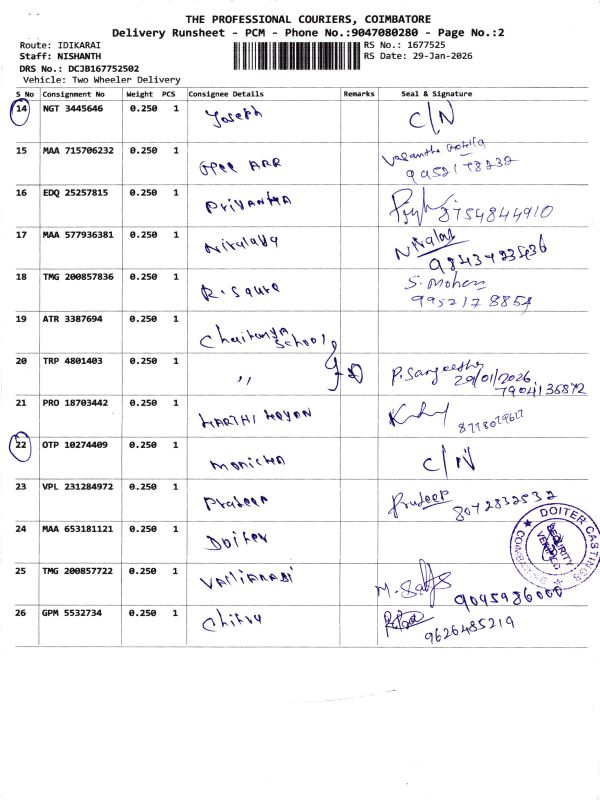 THE PROFESSIONAL COURIERS, COIMBATORE
Delivery Runsheet - PCM - Phone No.:9047080280 - Page No.:2
Route: IDIKARAI RS No.: 1677525
Staff: NISHANTH RS Date: 29-Jan-2026
DRS No.: DCJB167752502
Vehicle: Two Wheeler Delivery
S No Consignment No Weight PCS Consignee Details Remarks Seal & Signature
14 NGT 3445646 0.250 1 Joseph C/N
15 MAA 715706232 0.250 1 9952178232
16 EDQ 25257815 0.250 1 Priyanka 8754844910
17 MAA 577936381 0.250 1 Niralaya 9843723536
18 TMG 200857836 0.250 1 R. Saure S. Mohan
9952178854
19 ATR 3387694 0.250 1 Chaitanya School
20 TRP 4801403 0.250 1 " P. Sangeetha
29/01/2026
7904135872
21 PRO 18703442 0.250 1 8778079617
22 OTP 10274409 0.250 1 Monicka C/N
23 VPL 231284972 0.250 1 Pradeep Pradeep 8072832532
24 MAA 653181121 0.250 1 Doiter
DOITER CASTINGS
COIMBATORE
SECURITY
VERIFIED
25 TMG 200857722 0.250 1 9095986000
26 GPM 5532734 0.250 1 Chitra
9626485219